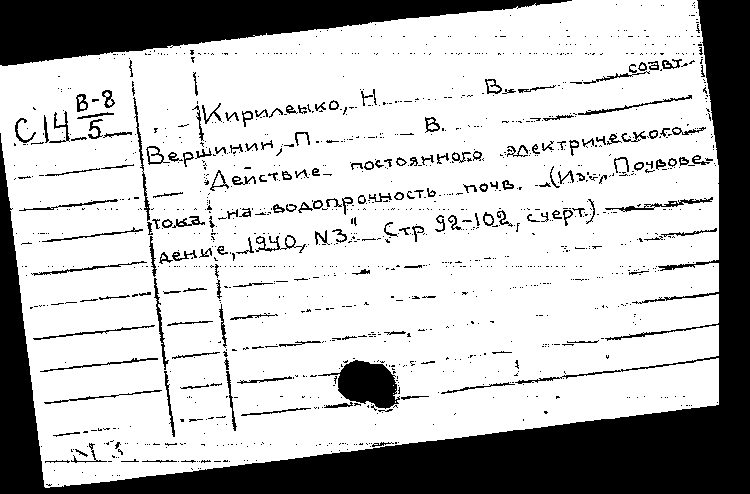 С14 В-8/5
Кириленко, Н. В. соавт.
Вершинин, П. В.
Действие постоянного электрического
тока на водопрочность почв. (Из:, Почвове-
дение, 1940, N3." Стр 92-102, с черт.)
N 3